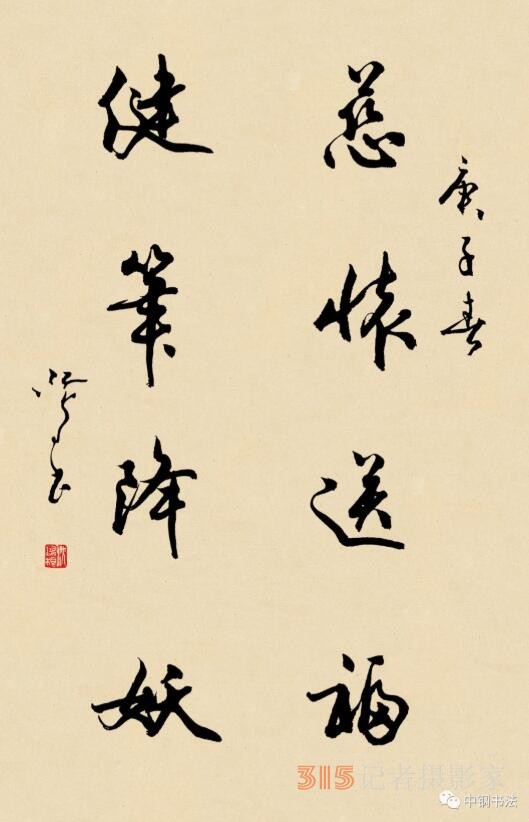 庚子春
慈怀送福
健筆降妖
315记者摄影家
中钢书法